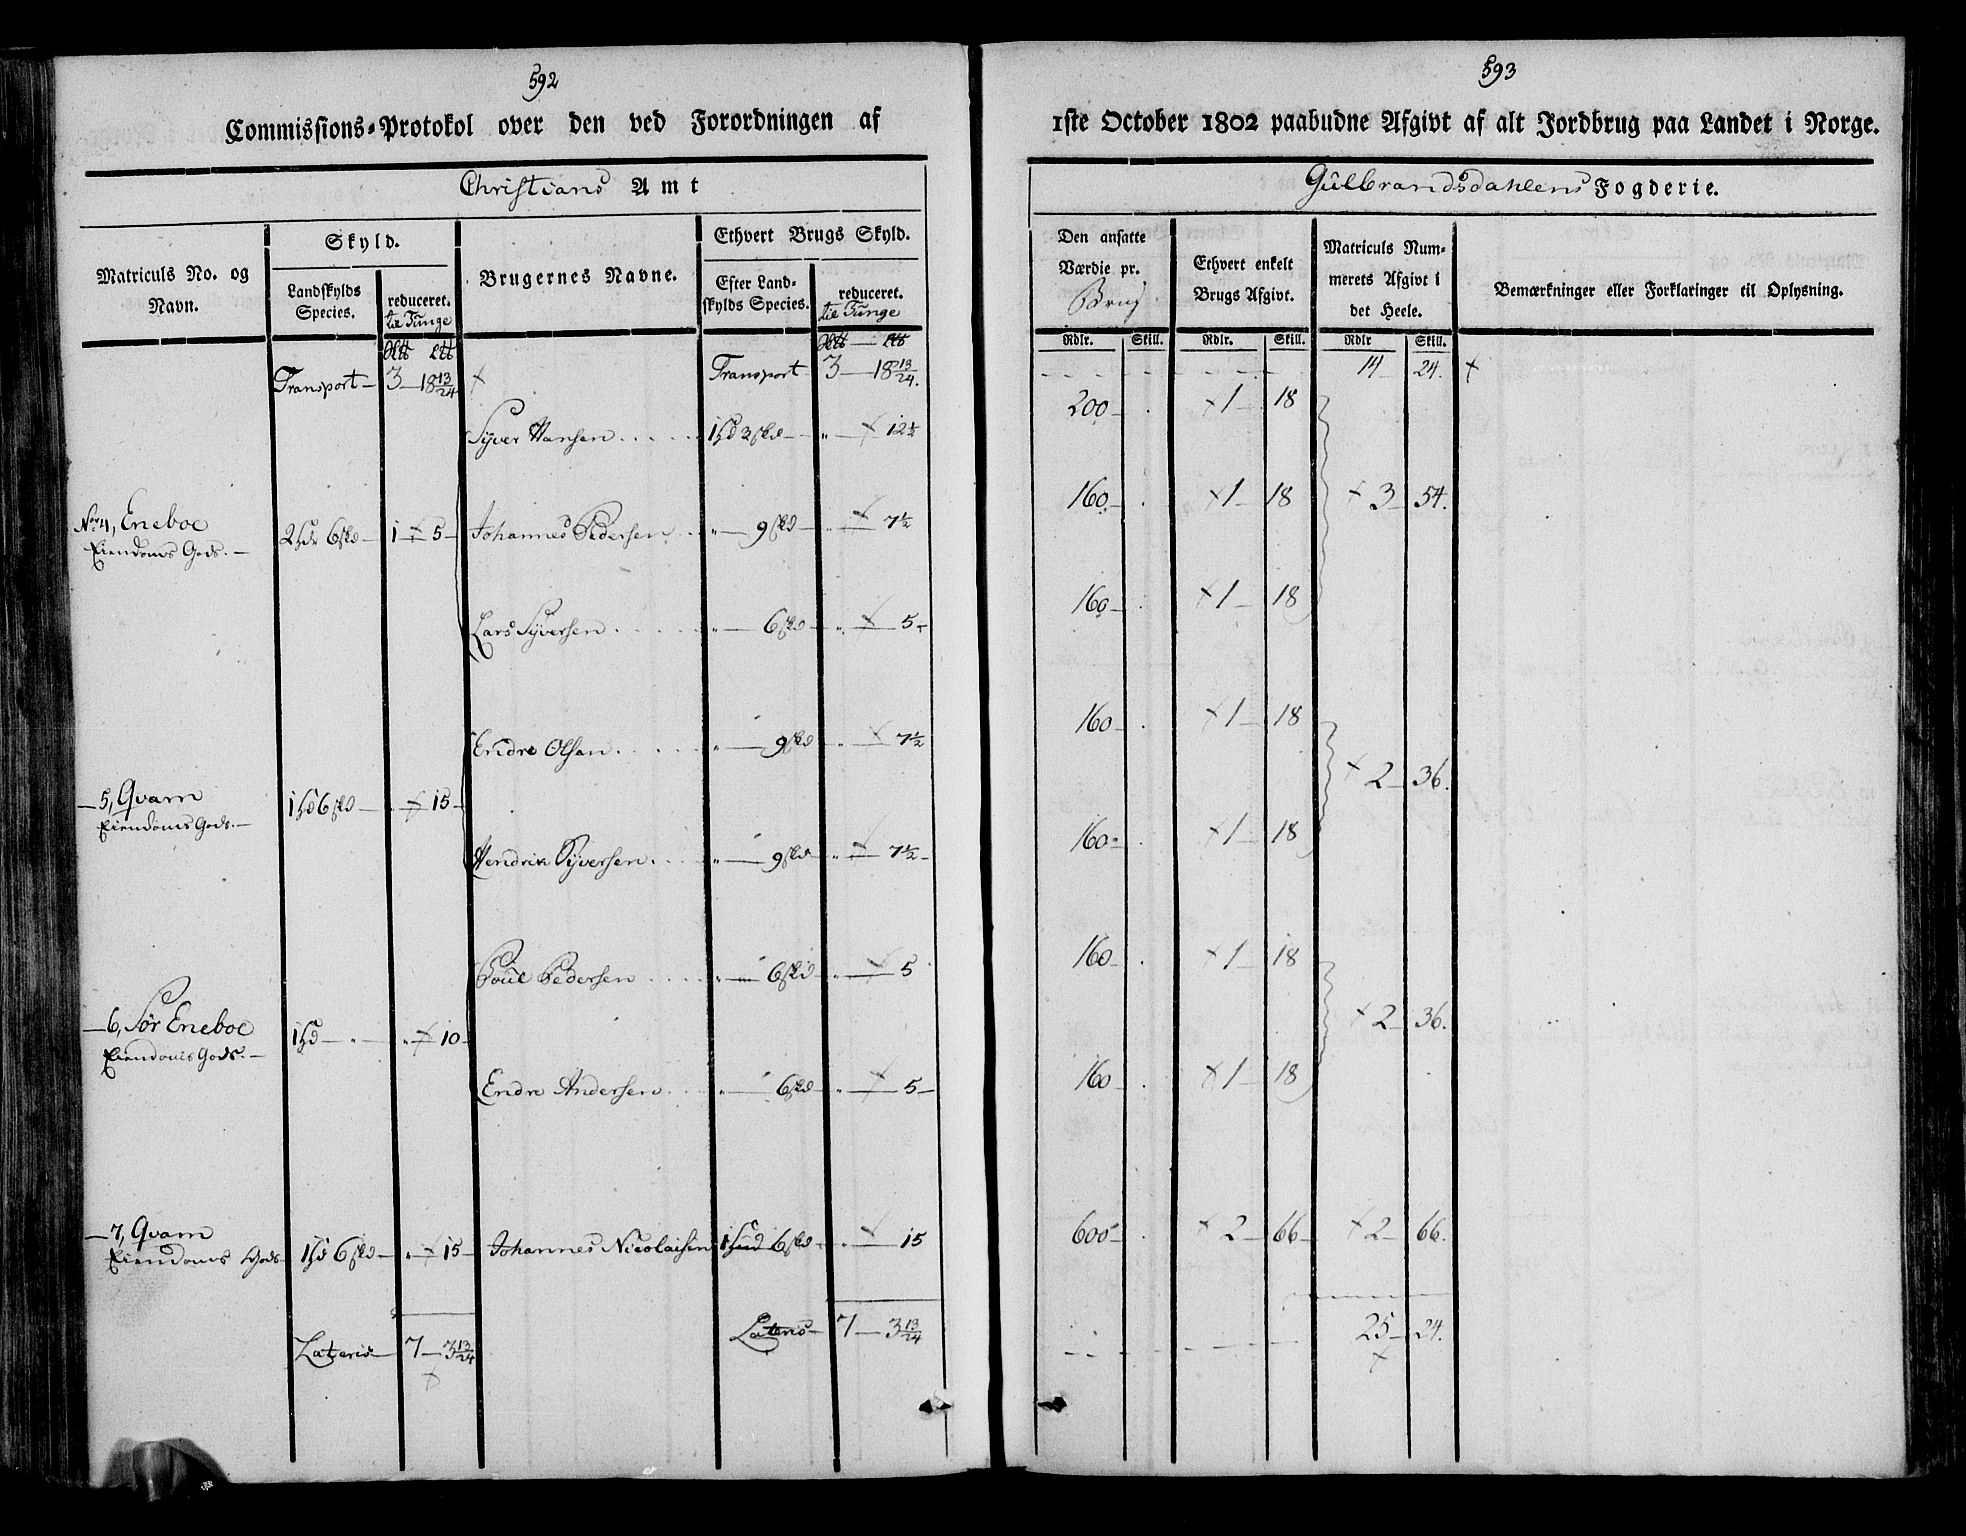 592
Commissions-Protokol over den ved Forordningen af
Christians Amt
Matriculs No. og Navn.
Skyld.
Landskylds Species.
reduceret. til Tunge
Brugernes Navne.
Ethvert Brugs Skyld.
Efter Landskylds Species.
reduceret. til Tunge
Transport 3 18 13/24 Transport 3 18 13/24
Syver Hansen 1 Hd 3 skd " 12½
No. 4, Eneboe
Eiendoms Gods.
2 Hdr 6 skd 1 5 Johannes Pedersen " 9 skd " 7½
Lars Syversen " 6 skd " 5
Endre Olsen " 9 skd " 7½
5, Qvam
Eiendoms Gods.
1 Hd 6 skd 15
Hendrik Syversen " 9 skd " 7½
Poul Pedersen " 6 skd " 5
6, Sør Eneboe
Eiendoms Gods.
1 Hd " " 10
Endre Andersen " 6 skd " 5
7, Qvam
Eiendoms Gods
1 Hd 6 skd " 15 Johannes Nicolaisen 1 Hud 6 skd " 15
Lateris 7 3 13/24 Lateris 7 3 13/24
593
1ste October 1802 paabudne Afgivt af alt Jordbrug paa Landet i Norge.
Gulbrandsdahlens Fogderie.
Den ansatte Værdie pr. Brug
Ethvert enkelt Brugs Afgivt.
Matriculs Nummerets Afgivt i det Heele.
Bemærkninger eller Forklaringer til Oplysning.
Rdlr. Skill. Rdlr. Skill. Rdlr Skill.
14 24.
200 1 18
160 1 18 3 54.
160 1 18
160 1 18
2 36.
160 1 18
160 1 18
2 36.
160 1 18
600 2 66 2 66.
25 24.